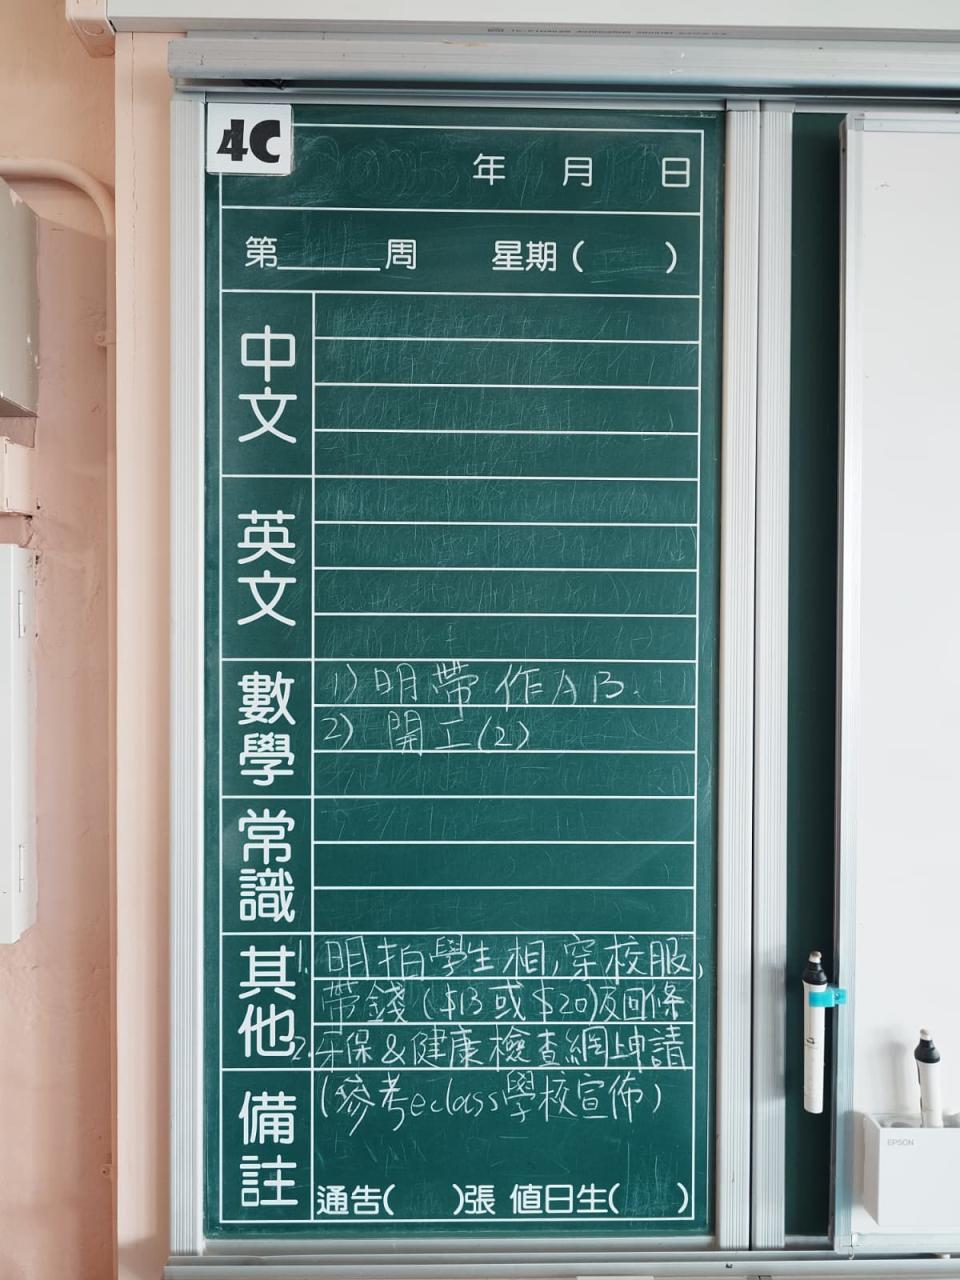 4C
年 月 日
第____周 星期( )
中文
英文
數學
1) 明帶 作AB.
2) 開工(2)
常識
其他
1. 明拍學生相,穿校服,
帶錢($13或$20)及回條
2. 牙保&健康檢查網上申請
備註
(參考eclass學校宣佈)
通告( )張 值日生( )
EPSON